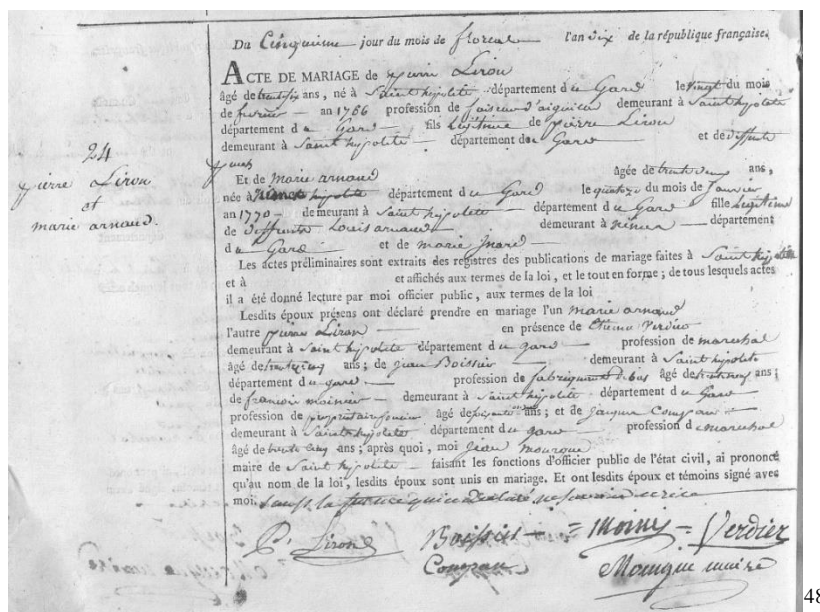 Du Cinquieme jour du mois de floreal l'an dix de la république française.
ACTE DE MARIAGE de pierre Liron
âgé de trente six ans, né à Saint hipolite département du Gard le vingt du mois
de fevrier an 1766 profession de faiseur d'aiguiere demeurant à Saint hipolite
département du Gard fils legitime de pierre Liron
demeurant à Saint hipolite département du Gard et de deffunte
24
pierre Liron
et
marie arnaud.
Et de Marie arnaud âgée de trente deux ans,
née à hipolite département du Gard le quatorze du mois de Janvier
an 1770 demeurant à Saint hipolite département du Gard fille legitime
de deffunt Louis arnaud demeurant à nimes département
du Gard et de marie
Les actes préliminaires sont extraits des registres des publications de mariage faites à Saint hipolite
et à et affichés aux termes de la loi, et le tout en forme; de tous lesquels actes
il a été donné lecture par moi officier public, aux termes de la loi
Lesdits époux présens ont déclaré prendre en mariage l'un marie arnaud
l'autre pierre Liron en présence de Verdier
demeurant à Saint hipolite département du gard profession de marechal
âgé de trente cinq ans; de jean Boissier demeurant à Saint hipolite
département du gard profession de fabriquant de bas âgé de ans;
de francois moinier demeurant à Saint hipolite département du Gard
profession de proprietaire foncier âgé de ans; et de jacques Compan
demeurant à Saint hipolite département du gard profession de marechal
âgé de trente cinq ans; après quoi, moi jean mourgue
maire de Saint hipolite faisant les fonctions d'officier public de l'état civil, ai prononcé
qu'au nom de la loi, lesdits époux sont unis en mariage. Et ont lesdits époux et témoins signé avec
moi. Sauf la future qui a declaré ne savoir ecrire
P. Liron Boissier Moinier Verdier
Compan Mourgue maire
48